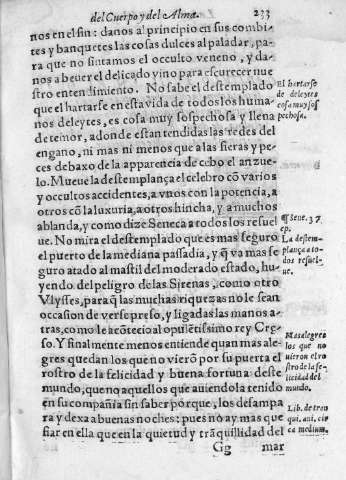 del Cuerpo y del Alma. 233
nos en el fin: danos al principio en sus combi-
tes y banquetes las cosas dulces al paladar, pa-
ra que no sintamos el occulto veneno, y da-
nos a beuer el delicado vino para escurecer nue
stro entendimiento. No sabe el destemplado
que el hartarse en esta vida de todos los huma-
nos deleytes, es cosa muy sospechosa y llena
de temor, adonde estan tendidas las redes del
engaño, ni mas ni menos que a las fieras y pe-
ces debaxo de la apparencia de cebo el anzue-
lo. Mueue la destemplança el celebro cõ varios
y occultos accidentes, a vnos con la potencia, a
otros cõ la luxuria, a otros hincha, y a muchos
ablanda, y como dize Seneca a todos los resuel
ue. No mira el destemplado que es mas seguro
el puerto de la mediana passadia, y q̃ va mas se
guro atado al mastil del moderado estado, hu-
yendo del peligro de las Sirenas, como otro
Vlysses, para q̃ las muchas riquezas no le sean
occasion de verse preso, y ligadas las manos a-
tras, como le acõtecio al opulẽtissimo rey Crę-
so. Y finalmente menos entiende quan mas ale-
gres quedan los que no vierõ por su puerta el
rostro de la felicidad y buena fortuna deste
mundo, que no aquellos que auiendola tenido
en su compañia sin saber porque, los desampa
ra y dexa a buenas noches: pues no ay mas que
fiar en ella que en la quietud y trãquillidad del
Gg mar
El hartarse
de deleytes
cosa muy sos
pechosa.
¶ Sene. 37.
ep.
La destem-
plança a to-
dos resuel-
ue.
Mas alegres
los que no
uieron el ro
stro de la fe-
licidad del
mundo.
Lib. de tran
qui. ani. cir
ca medium.